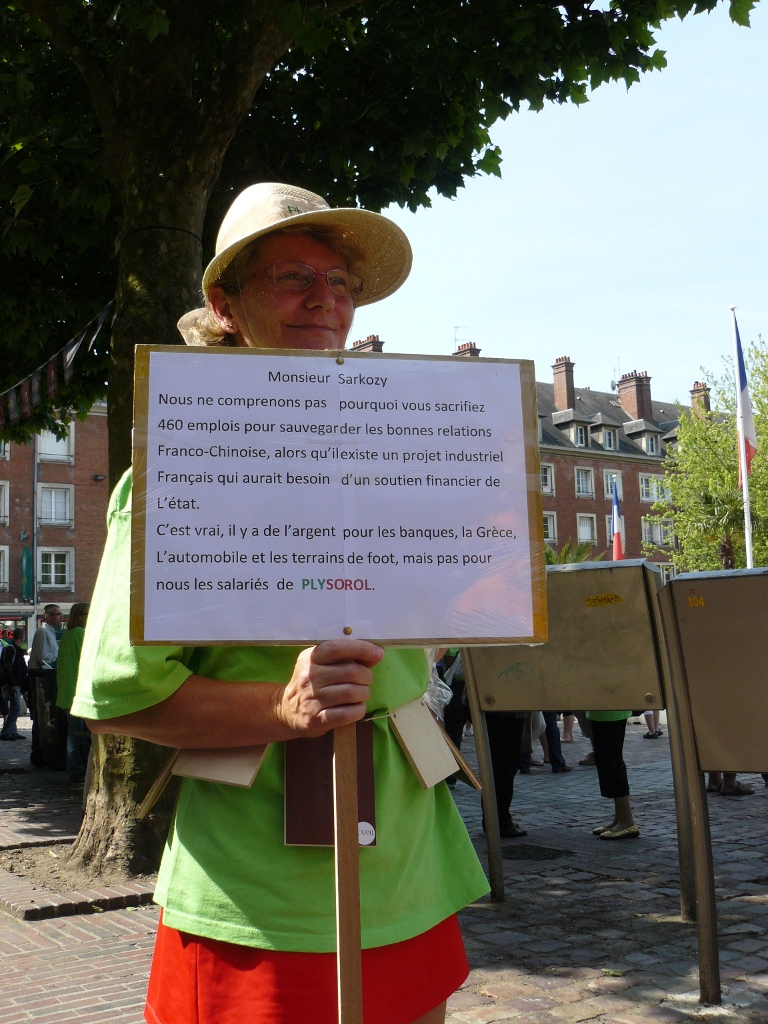 Monsieur Sarkozy
Nous ne comprenons pas pourquoi vous sacrifiez
460 emplois pour sauvegarder les bonnes relations
Franco-Chinoise, alors qu'il existe un projet industriel
Français qui aurait besoin d'un soutien financier de
L'état.
C'est vrai, il y a de l'argent pour les banques, la Grèce,
L'automobile et les terrains de foot, mais pas pour
nous les salariés de PLYSOROL.
304